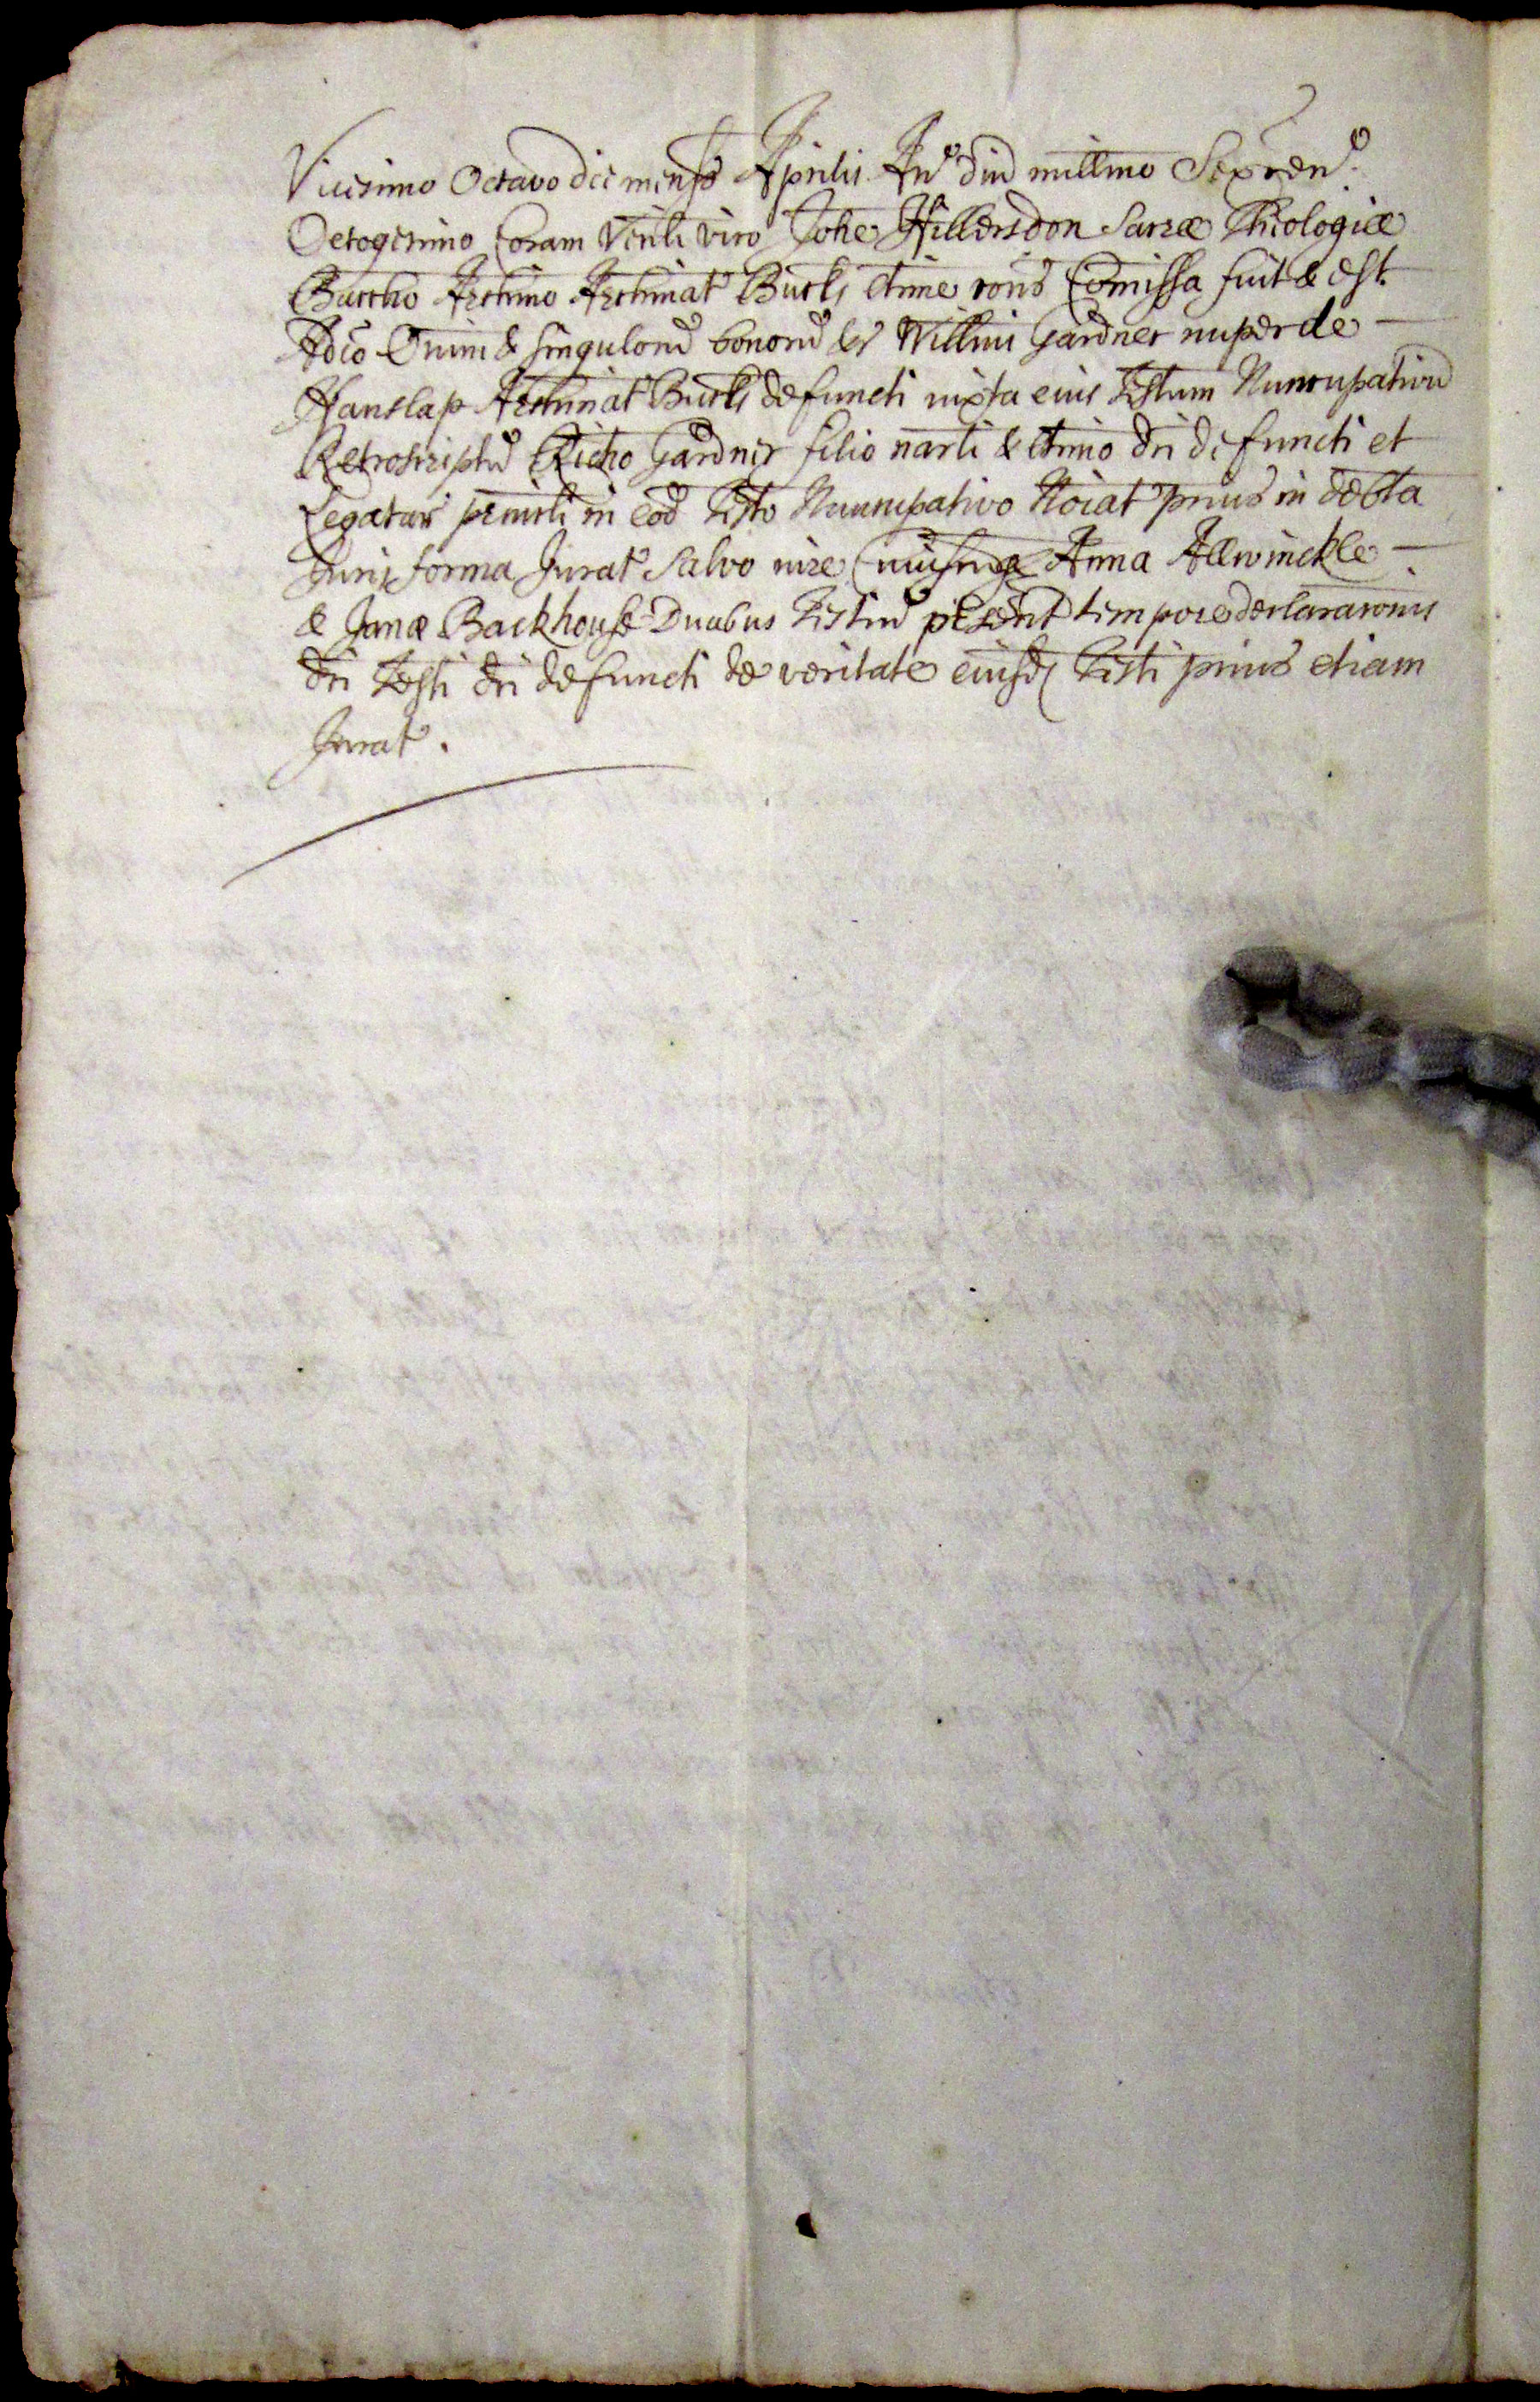 Vicesimo Octavo die mensis Aprilis An̄o dn̄i mill̄mo Sexcen:
Octogesimo Coram Ven̄li viro Joh̄e Hillersdon Sacræ Theologiæ
Bacc̄ho Arch̄no Arch̄inat Bucks l̄time cōns Com̄issa fuit & est
Ad̄co Om̄ium & singulorū bonorū &c Will̄mi Gardner nuper de
Hanslap Arch̄inat Bucks defuncti iuxta eius Test̄um Nuncupativū
Retroscriptū Ric̄ho Gardner filio nar̄li & l̄timo d̄ci defuncti et
Legatar in eod Test̄o Nuncupativo No͞iat prius in deb̄ta
Juris forma Jurat Salvo iure Cuiuscunq Anna Allwinckle
& Jana Backhouse Duabus Testiū p̄sent tempore declarac̄onis
d̄ci Test̄i d̄ci defuncti de veritate eiusd Test̄i prius etiam
Jurat.